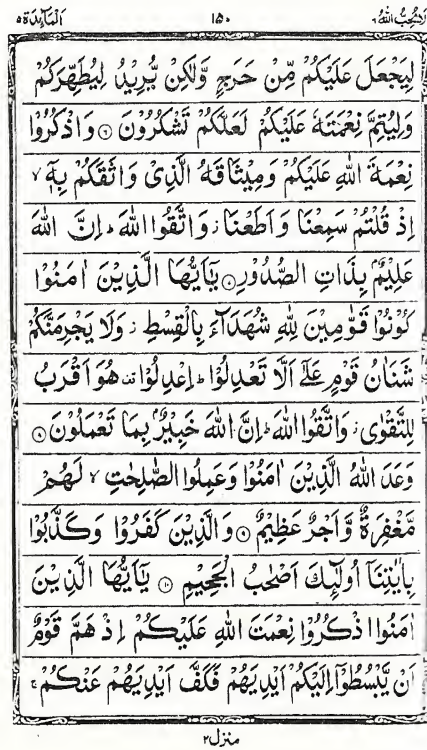 لَا يُحِبُّ اللهُ ٦ ١٥٠ اَلْمَآئِدَة ٥
لِيَجْعَلَ عَلَيْكُمْ مِّنْ حَرَجٍ وَّلٰكِنْ يُّرِيْدُ لِيُطَهِّرَكُمْ
وَلِيُتِمَّ نِعْمَتَهٗ عَلَيْكُمْ لَعَلَّكُمْ تَشْكُرُوْنَ ۝٦ وَاذْكُرُوْا
نِعْمَةَ اللهِ عَلَيْكُمْ وَمِيْثَاقَهُ الَّذِىْ وَاثَقَكُمْ بِهٖٓ ۙ
اِذْ قُلْتُمْ سَمِعْنَا وَاَطَعْنَا ۡ وَاتَّقُوا اللهَ ؕ اِنَّ اللهَ
عَلِيْمٌۢ بِذَاتِ الصُّدُوْرِ ۝ يٰٓاَيُّهَا الَّذِيْنَ اٰمَنُوْا
كُوْنُوْا قَوّٰمِيْنَ لِلّٰهِ شُهَدَآءَ بِالْقِسْطِ ۡ وَلَا يَجْرِمَنَّكُمْ
شَنَاٰنُ قَوْمٍ عَلٰٓى اَلَّا تَعْدِلُوْا ؕ اِعْدِلُوْا ۟ هُوَ اَقْرَبُ
لِلتَّقْوٰى ۡ وَاتَّقُوا اللهَ ؕ اِنَّ اللهَ خَبِيْرٌۢ بِمَا تَعْمَلُوْنَ ۝
وَعَدَ اللهُ الَّذِيْنَ اٰمَنُوْا وَعَمِلُوا الصّٰلِحٰتِ ۙ لَهُمْ
مَّغْفِرَةٌ وَّاَجْرٌ عَظِيْمٌ ۝٩ وَالَّذِيْنَ كَفَرُوْا وَكَذَّبُوْا
بِاٰيٰتِنَآ اُولٰٓئِكَ اَصْحٰبُ الْجَحِيْمِ ۝١٠ يٰٓاَيُّهَا الَّذِيْنَ
اٰمَنُوا اذْكُرُوْا نِعْمَتَ اللهِ عَلَيْكُمْ اِذْ هَمَّ قَوْمٌ
اَنْ يَّبْسُطُوْٓا اِلَيْكُمْ اَيْدِيَهُمْ فَكَفَّ اَيْدِيَهُمْ عَنْكُمْ ۚ
منزل ٢